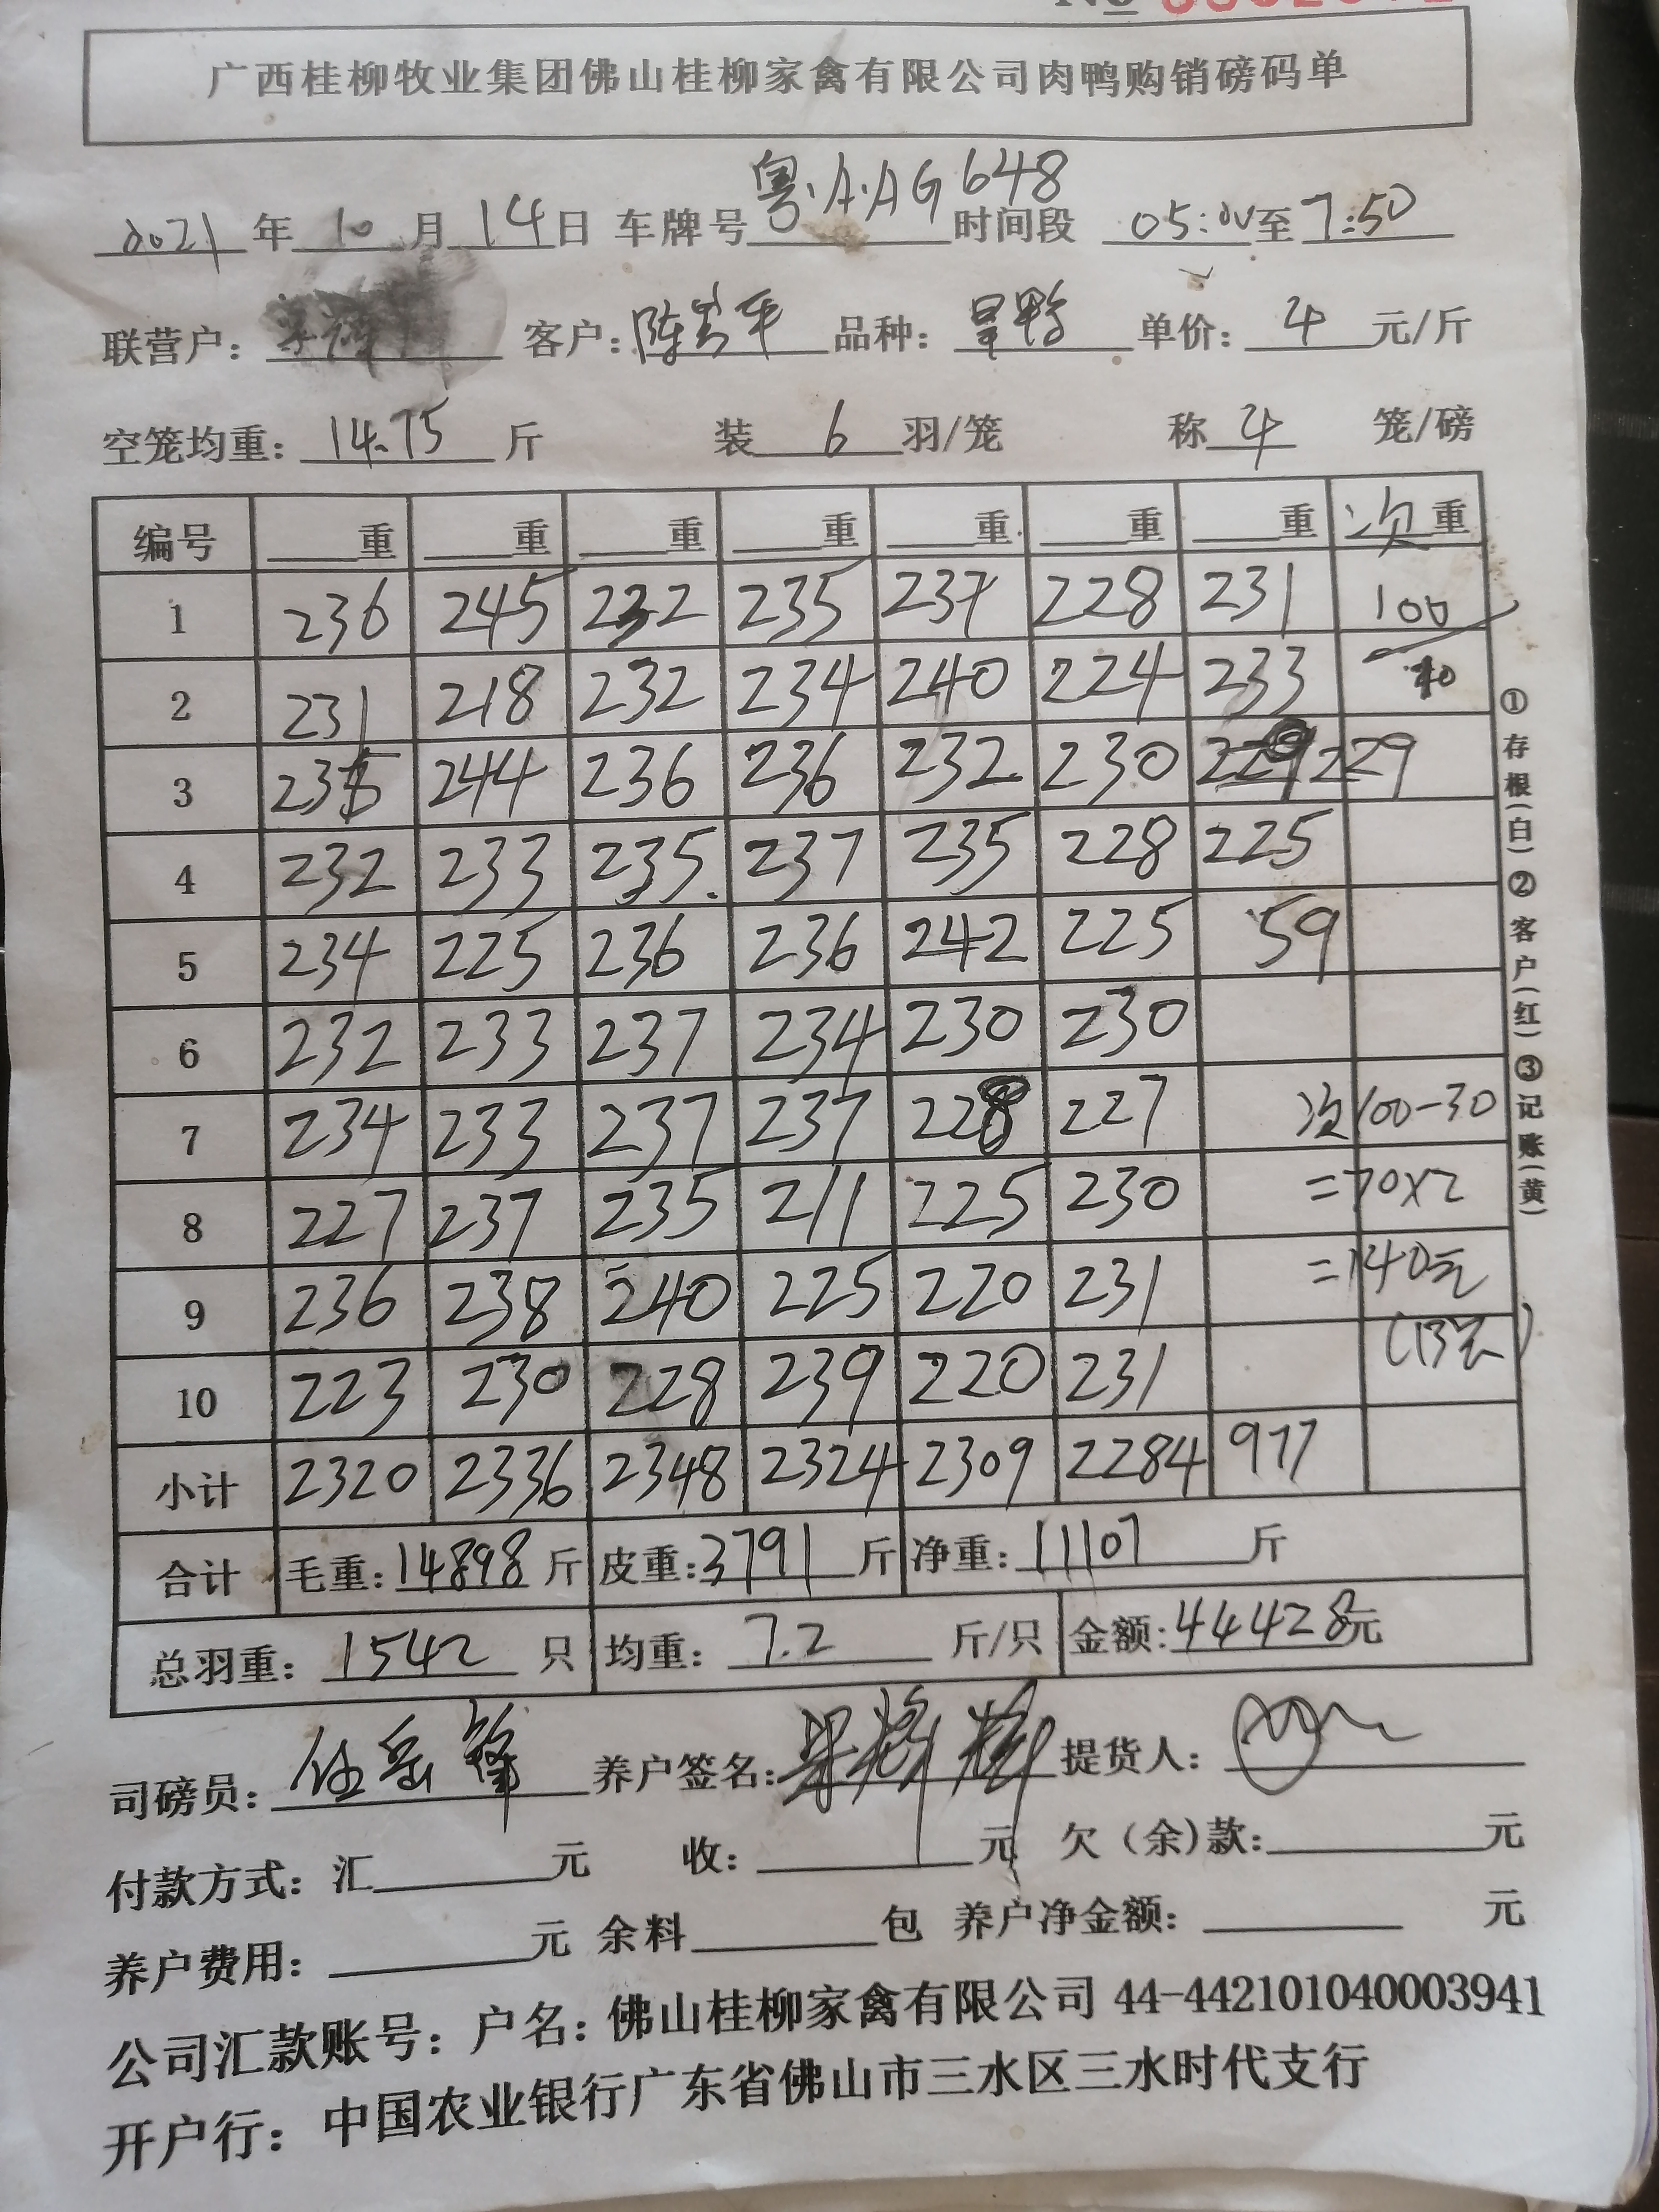 广西桂柳牧业集团佛山桂柳家禽有限公司肉鸭购销磅码单
2021 年 10 月 14 日 车牌号 粤·A·AG648 时间段 05:00 至 7:50
联营户： 客户： 陈 平 品种： 单价： 4 元/斤
空笼均重： 14.75 斤 装 6 羽/笼 称 4 笼/磅
编号 重 重 重 重 重 重 重 次重
1 236 245 232 235 237 228 231 100
2 231 218 232 234 240 224 233
3 235 244 236 236 232 230 229 229
4 232 233 235 237 235 228 225
5 234 225 236 236 242 225 59
6 232 233 237 234 230 230
7 234 233 237 237 228 227 次100-30
8 227 237 235 211 225 230 =70×2
9 236 238 240 225 220 231 =140元
10 223 230 228 239 220 231
小计 2320 2336 2348 2324 2309 2284 977
合计 毛重：14898 斤 皮重：3791 斤 净重：11107 斤
总羽重： 1542 只 均重： 7.2 斤/只 金额：44428元
①存根(白)②客户(红)③记账(黄)
司磅员： 伍岳锋 养户签名： 提货人：
付款方式：汇 元 收： 元 欠（余)款： 元
养户费用： 元 余料 包 养户净金额： 元
公司汇款账号：户名：佛山桂柳家禽有限公司 44-442101040003941
开户行：中国农业银行广东省佛山市三水区三水时代支行